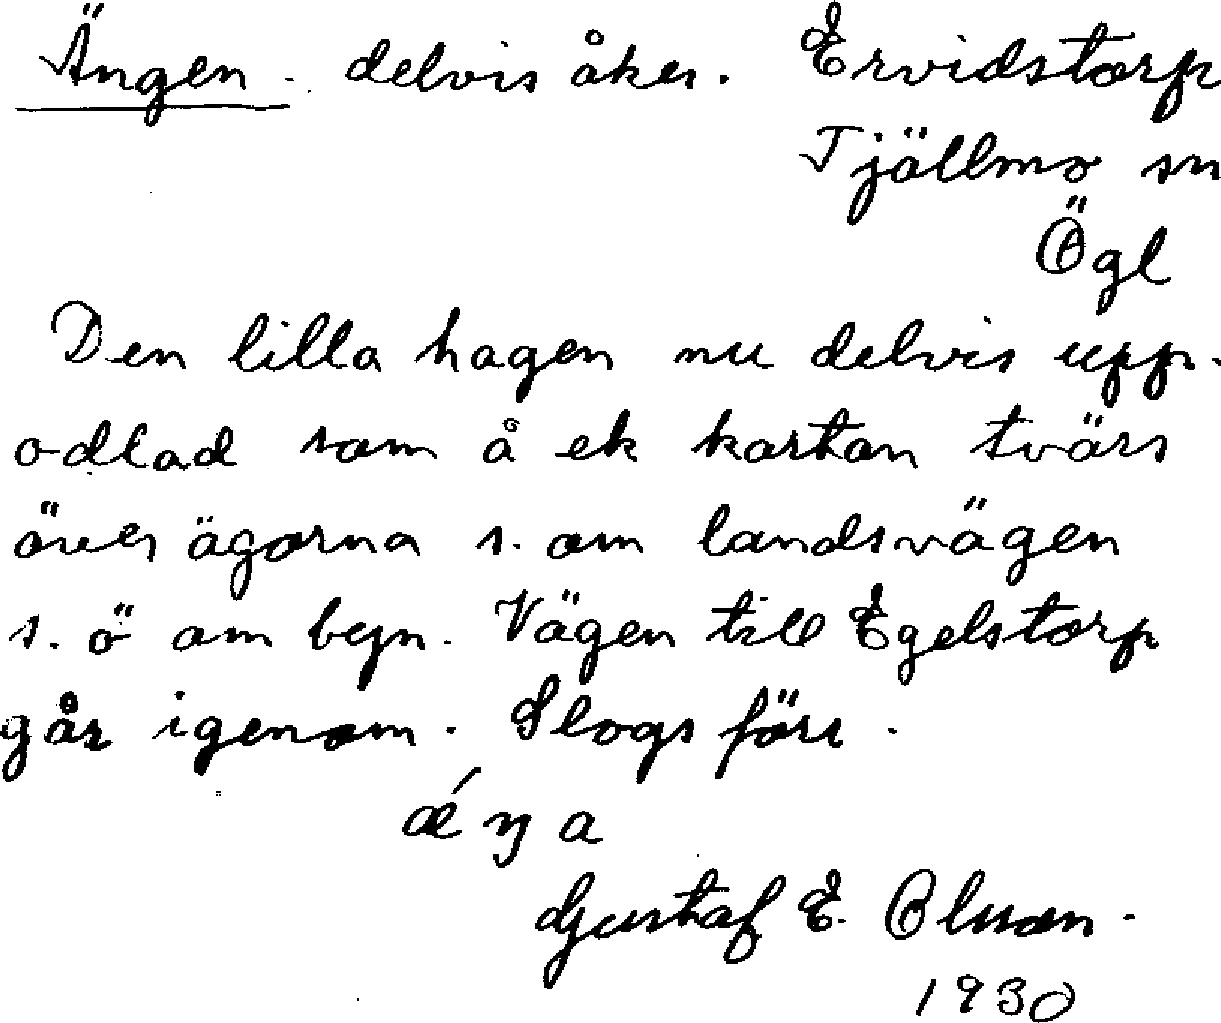 Ängen. delvis åker. Ervidstorp
Tjällmo sn
Ögl
Den lilla hagen nu delvis upp-
odlad som å ek kartan tvärs
över ägorna s. om landsvägen
s. ö om byn. Vägen till Egelstorp
går igenom. Slogs förr.
Gustaf E. Olsson.
1930